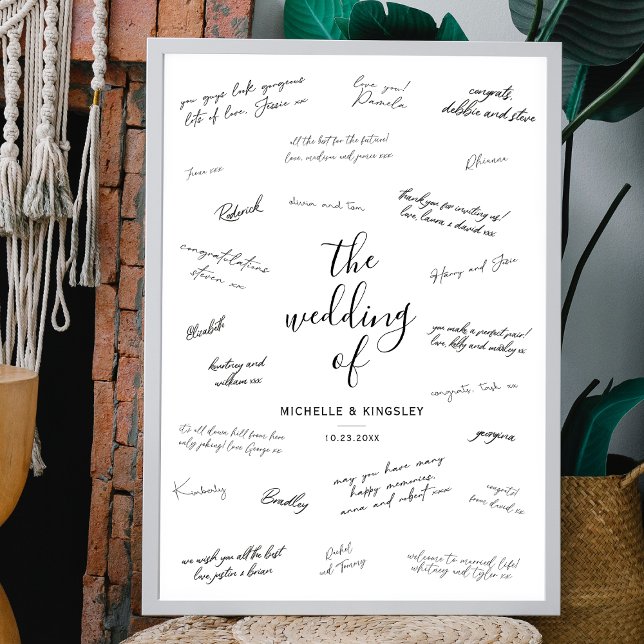 you guys look gorgeous
lots of love, Jessie xx
love you!
Pamela
congrats,
debbie and steve
all the best for the future!
love, madison and jamie xx
xxx
Rhianna
Roderick
olivia and tom
thank you for inviting us!
love, laura & david xx
congratulations
steven xx
the
wedding
of
Harry and Jizie
Elizabeth
you make a perfect pair!
love, kelly and marley xx
kourtney and
william xxx
congrats, tash xx
MICHELLE & KINGSLEY
10.23.20XX
it's all down hill from here
only joking! love George xx
georgina
Kimberly
Bradley
may you have many
happy memories,
anna and robert xxx
congrats!
from david xx
we wish you all the best
love, justin & brian
Rachel
and Tommy
welcome to married life!
whitney and tyler xx